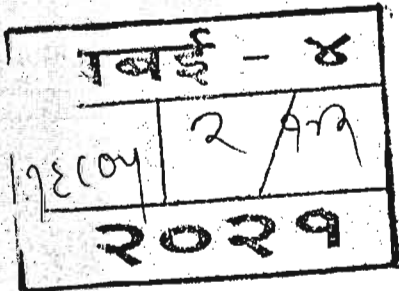 मबई - ४
१६८०५ २/१५२
२०२१